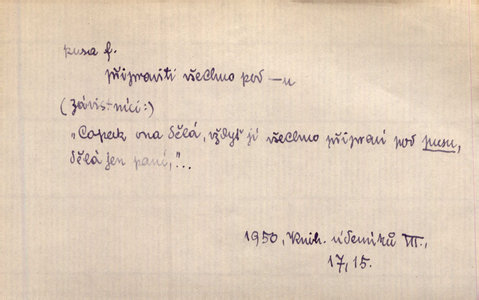 pusa f.
připraviti všechno pod –u
(Závistníci:)
"Copak ona dělá, vždyť jí všechno připraví pod pusu,
dělá jen paní,"...
1950, Knih. úderníků VII.,
17,15.